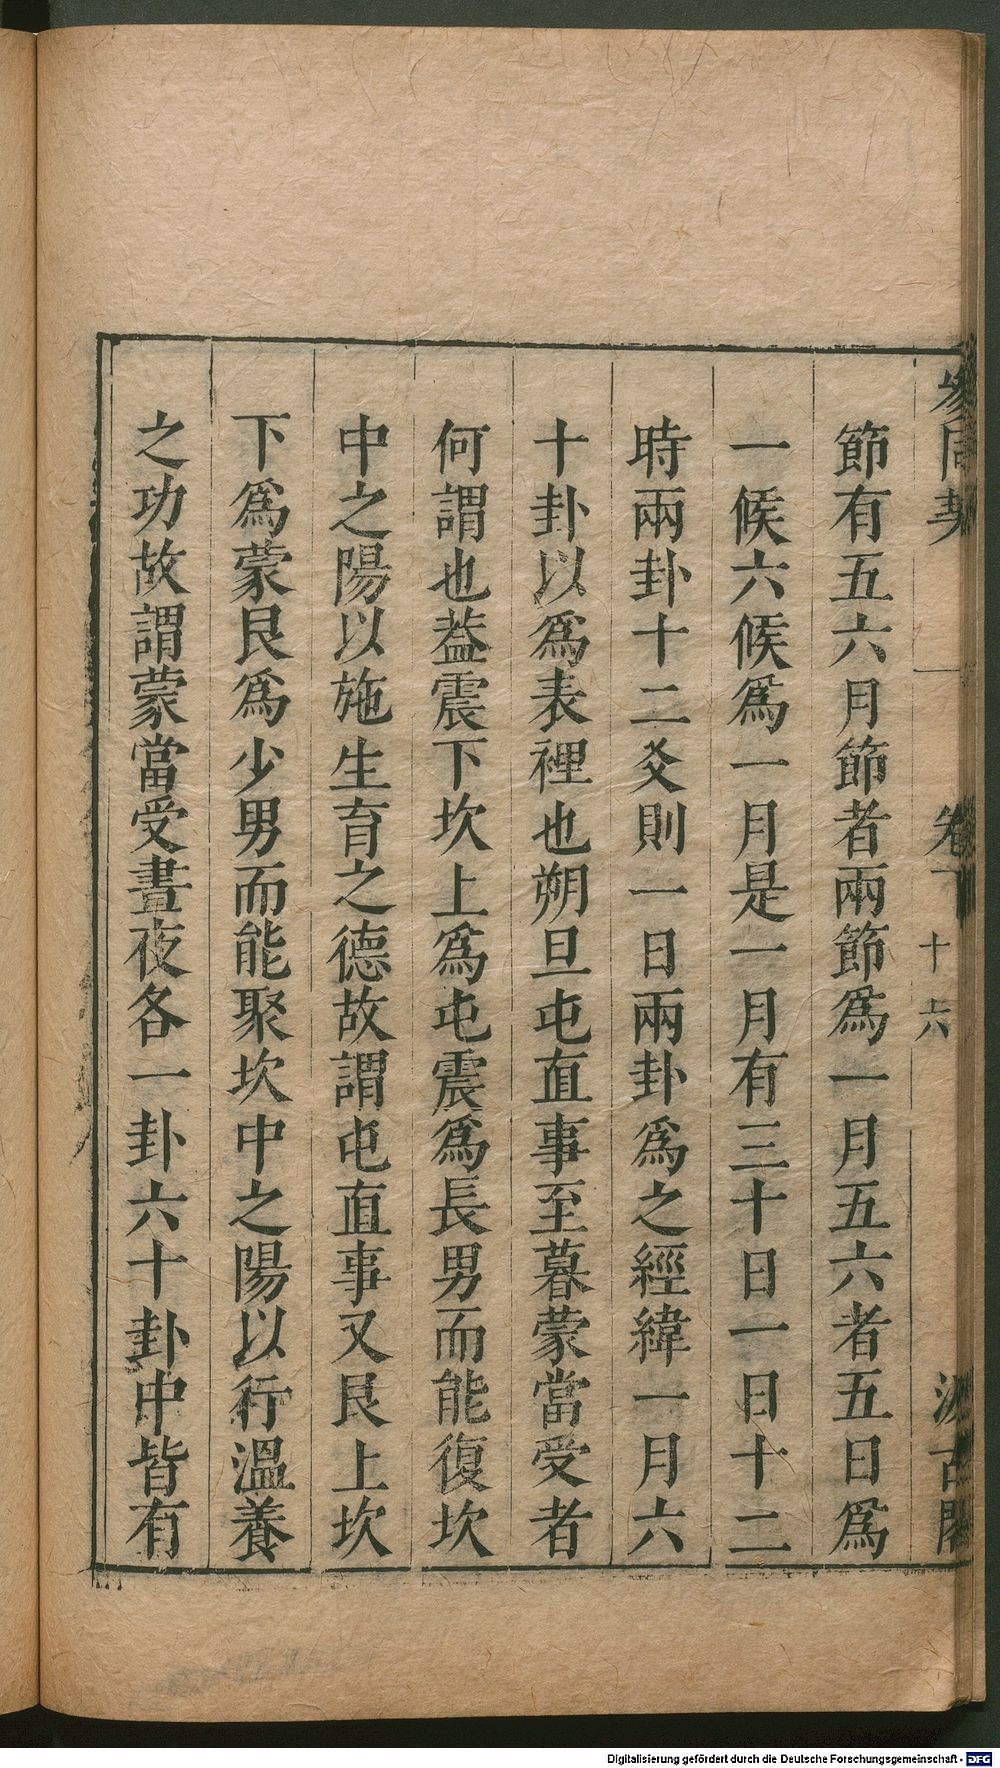 參同契 卷 十六 汲古閣
節有五六月節者兩節爲一月五六者五日爲
一候六候爲一月是一月有三十日一日十二
時兩卦十二爻則一日兩卦爲之經緯一月六
十卦以爲表裡也朔旦屯直事至暮蒙當受者
何謂也葢震下坎上爲屯震爲長男而能復坎
中之陽以施生育之德故謂屯直事又艮上坎
下爲蒙艮爲少男而能聚坎中之陽以行溫養
之功故謂蒙當受晝夜各一卦六十卦中皆有
Digitalisierung gefördert durch die Deutsche Forschungsgemeinschaft - DFG